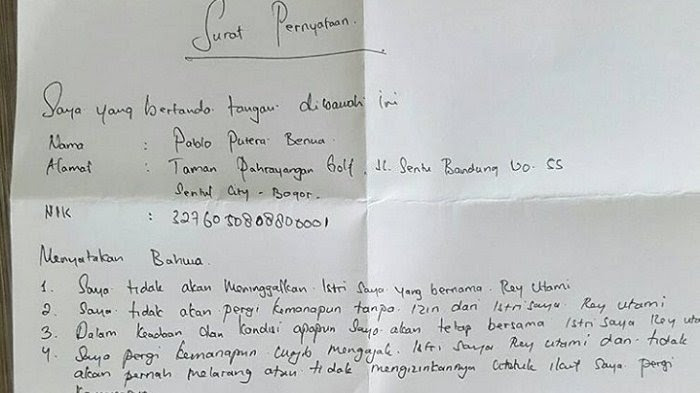 Surat Pernyataan.
Saya yang bertanda tangan dibawah ini
Nama : Pablo Putera Benua.
Alamat : Taman Pahrayangan Golf, Jl. Sentu Bandung No. 55
Sentul City - Bogor.
NIK : 3276050808800001
Menyatakan Bahwa.
1. Saya tidak akan meninggalkan Istri saya yang bernama Rey Utami
2. Saya tidak akan pergi kemanapun tanpa izin dari Istri saya Rey Utami
3. Dalam keadaan dan kondisi apapun saya akan tetap bersama Istri saya Rey
4. Saya pergi kemanapun wajib mengajak Istri saya Rey Utami dan tidak
akan pernah melarang atau tidak mengizinkannya untuk ikut saya pergi